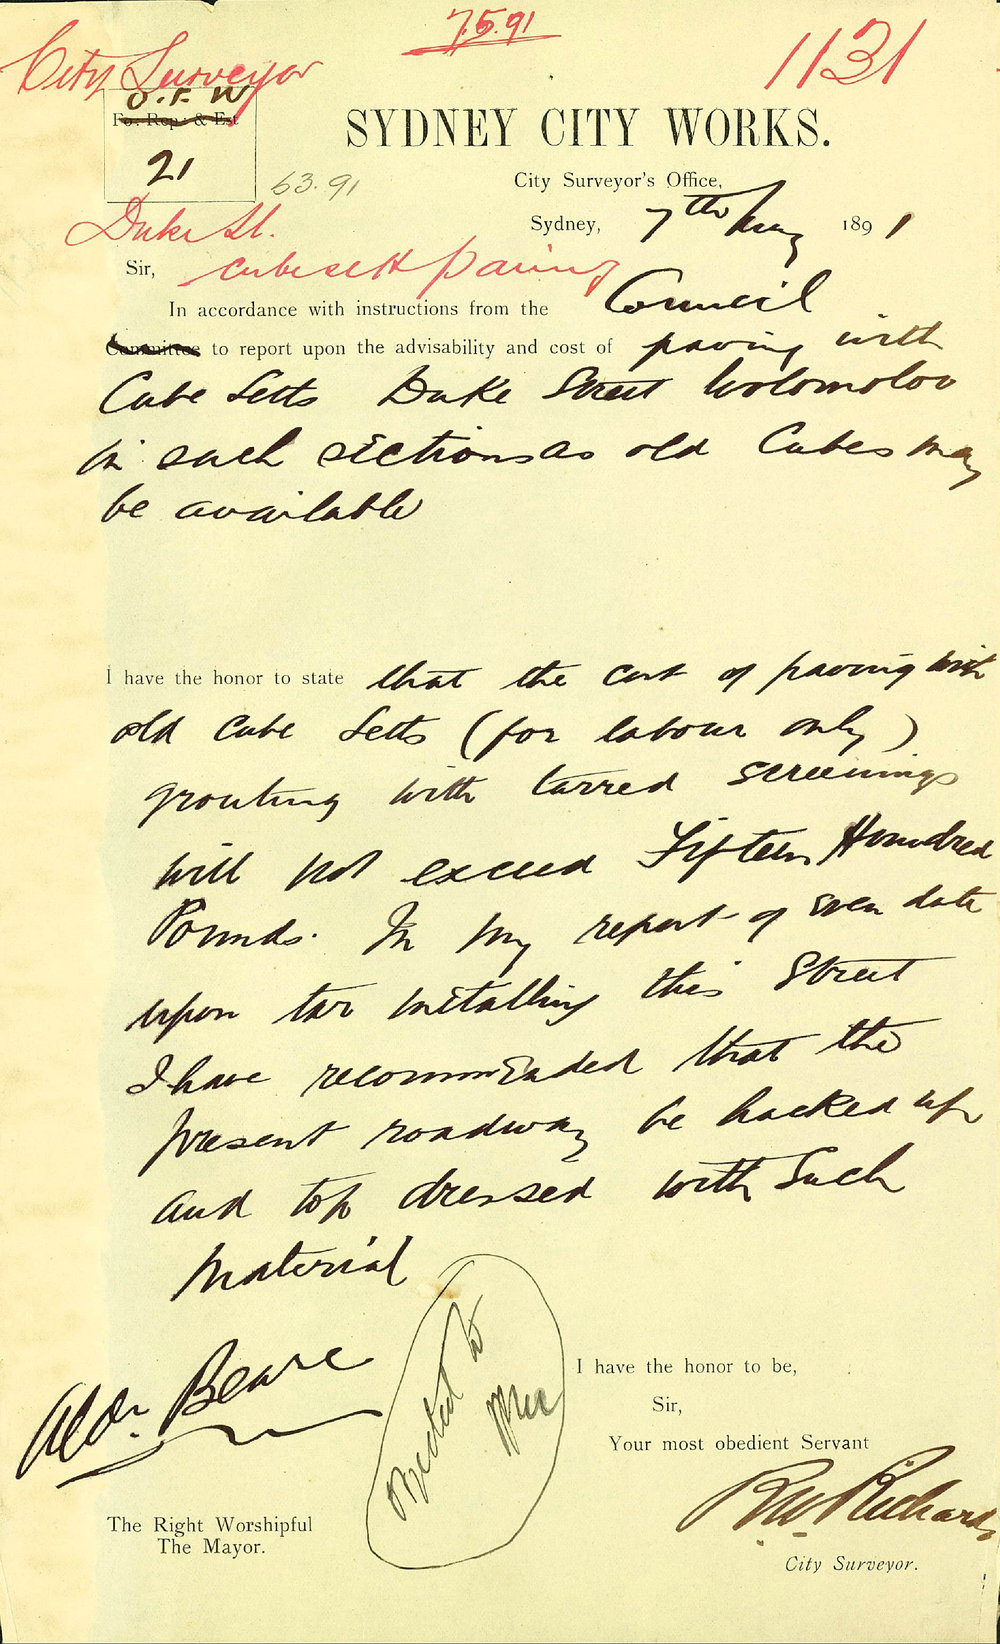 7.5.91
1131
City Surveyor
O.F.W
Fo: Rep: & Est
21
63.91
SYDNEY CITY WORKS.
City Surveyor's Office,
Sydney, 7th May 1891
Duke St.
Sir, cube sett paving
In accordance with instructions from the Council
Committee to report upon the advisability and cost of paving with
Cube Setts Duke Street Wolomoloo
in such sections as old Cubes may
be available
I have the honor to state that the cost of paving with
old Cube Setts (for labour only)
grouting with tarred screenings
will not exceed Fifteen Hundred
Pounds. In my report of even date
upon tar metalling this Street
I have recommended that the
present roadway be hacked up
and top dressed with such
material
Aldn. Beare
objected to
I have the honor to be,
Sir,
Your most obedient Servant
R W Richards
City Surveyor.
The Right Worshipful
The Mayor.